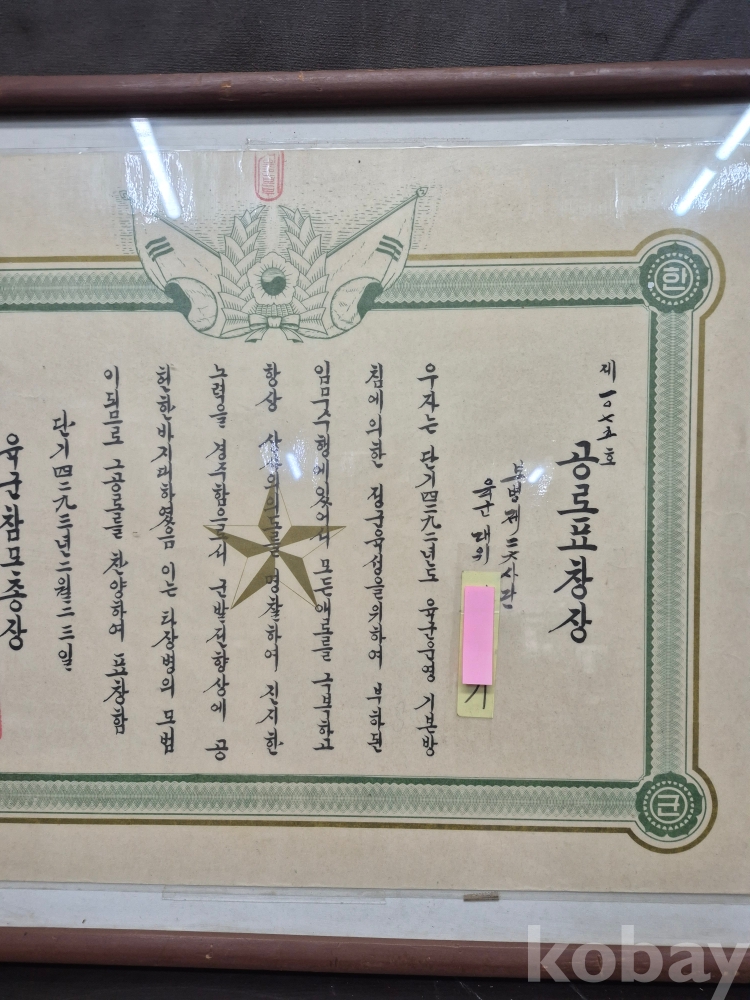 제一〇六五호
공로표창상
보병제三六사단
육군대위
기
우자는 단기四二九二년도 육군운영 기본방
침에 의한 정군육성을위하여 부하된
임무수행에있어서 모든애로를 극복하고
항상 상사의의도를 명찰하여 진지한
노력을 경주함으로서 군발전향상에 공
헌한바지대하였음 이는 타장병의 모범
이되므로 그공로를 찬양하여 표창함
단기四二九三년二월二三일
육군참모총장
한
근
kobay